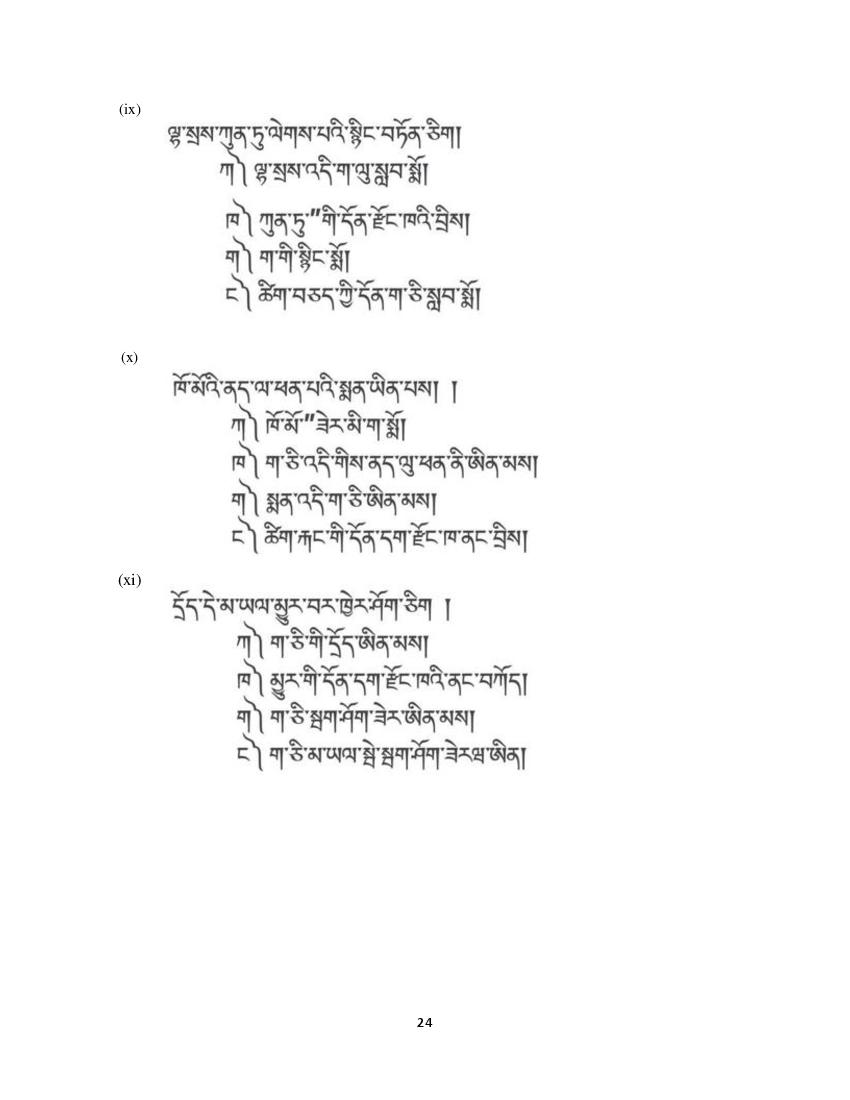 (ix)
ལྷ་སྲས་ཀུན་ཏུ་ལེགས་པའི་སྙིང་བཏོན་ཅིག།
ཀ༽ ལྷ་སྲས་འདི་ག་ལུ་སླབ་སྨོ།
ཁ༽ ཀུན་ཏུ་"གི་དོན་རྫོང་ཁའི་བྲིས།
ག༽ ག་གི་སྙིང་སྨོ།
ང༽ ཚིག་བཅད་ཀྱི་དོན་ག་ཅི་སླབ་སྨོ།
(x)
ཁོ་མོའི་ནད་ལ་ཕན་པའི་སྨན་ཡིན་པས། །
ཀ༽ ཁོ་མོ་"ཟེར་མི་ག་སྨོ།
ཁ༽ ག་ཅི་འདི་གིས་ནད་ལུ་ཕན་ནི་ཨིན་མས།
ག༽ སྨན་འདི་ག་ཅི་ཨིན་མས།
ང༽ ཚིག་རྐང་གི་དོན་དག་རྫོང་ཁ་ནང་བྲིས།
(xi)
དྲོད་དེ་མ་ཡལ་མྱུར་བར་ཁྱེར་ཤོག་ཅིག །
ཀ༽ ག་ཅི་གི་དྲོད་ཨིན་མས།
ཁ༽ མྱུར་གི་དོན་དག་རྫོང་ཁའི་ནང་བཀོད།
ག༽ ག་ཅི་སྦག་ཤོག་ཟེར་ཨིན་མས།
ང༽ ག་ཅི་མ་ཡལ་སྦེ་སྦག་ཤོག་ཟེརཝ་ཨིན།
24